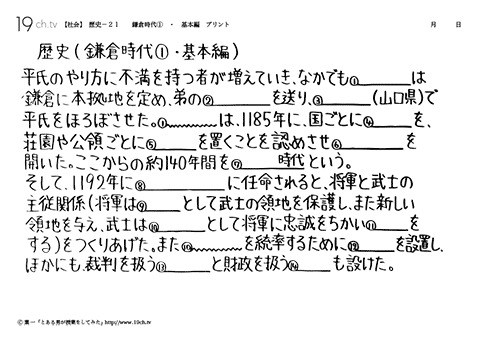 19ch.tv 【社会】 歴史－21 鎌倉時代① ・ 基本編 プリント 月 日
歴史(鎌倉時代①・基本編)
平氏のやり方に不満を持つ者が増えていき、なかでも①______は
鎌倉に本拠地を定め、弟の②______を送り、③______(山口県)で
平氏をほろぼさせた。①______は、1185年に、国ごとに④______を、
荘園や公領ごとに⑤______を置くことを認めさせ⑥______を
開いた。ここからの約140年間を⑦______時代という。
そして、1192年に⑧______に任命されると、将軍と武士の
主従関係(将軍は⑨______として武士の領地を保護し、また新しい
領地を与え、武士は⑩______として将軍に忠誠をちかい⑪______を
する)をつくりあげた。また⑩______を統率するために⑫______を設置し、
ほかにも、裁判を扱う⑬______と財政を扱う⑭______も設けた。
© 葉一「とある男が授業をしてみた」http://www.19ch.tv